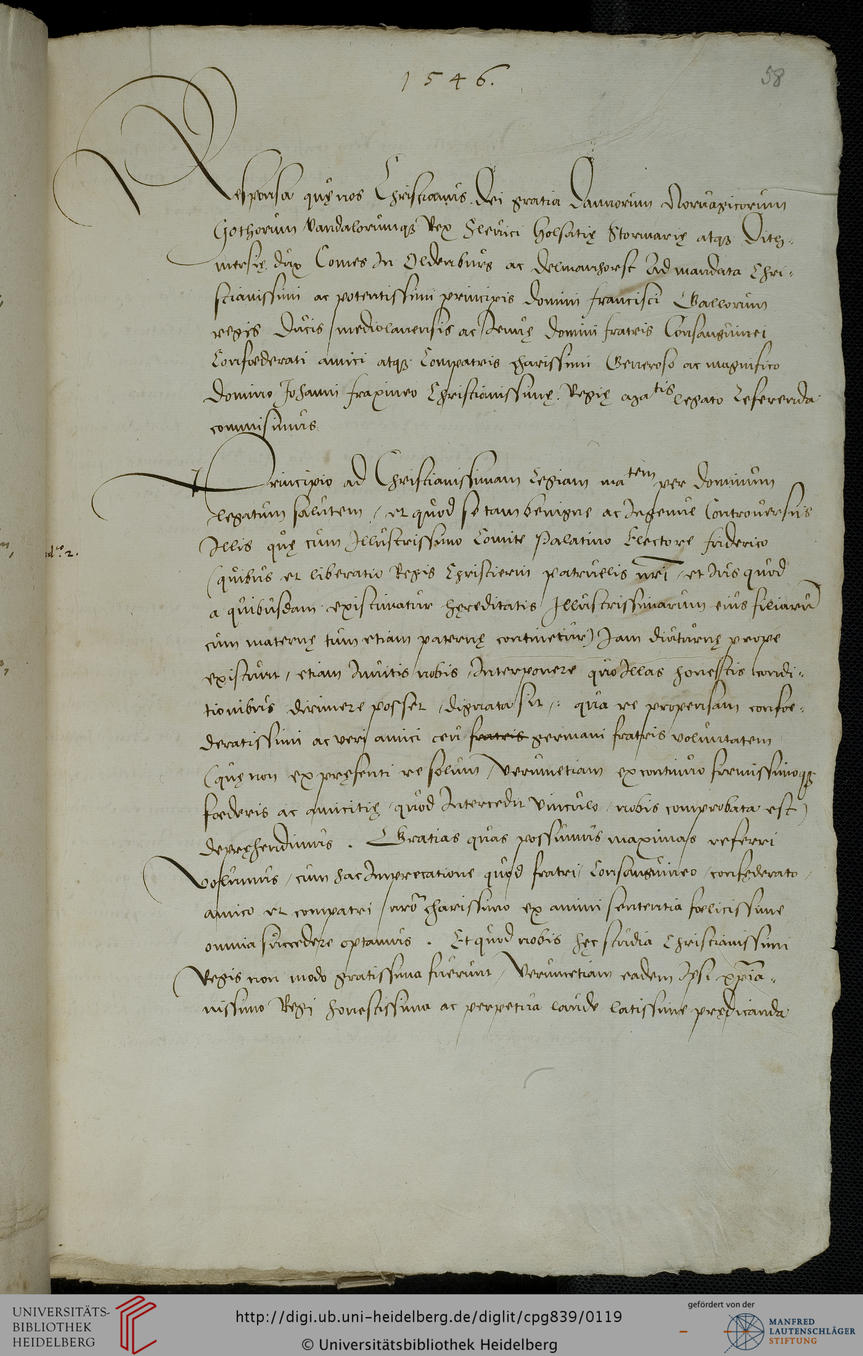 1546.
58
Responsa quę nos Christianus Dei gratia Dannorum Noruagicorum
Gothorum Vandalorumqꝫ Rex Slesuici Holsatię Stormarię atqꝫ Dith-
mersię dux Comes In Oldenburg ac Delmanhorst Ad mandata Chri-
stianissimi ac potentissimi principis domini Francisci Gallorum
regis Ducis mediolanensis ac Jenuę domini fratris Consanguinei
Confœderati amici atqꝫ Compatris charissimi Generoso ac magnifico
domino Johanni fraxineo Christianissimę Regię maᵗⁱˢ legato Referenda
commisimus
Principio ad Christianissimam Regiam maᵗᵉᵐ per dominum
legatum salutem / et quod se tam benigne ac Ingenue Controuersiis
Illis quę cum Illustrissimo Comite Palatino Electore friderico
(quibus et liberatio Regis Christierni patruelis nr̄i / et Ius quod
a quibusdam existimatur hęreditatis Illustrissimarum eius filiarū
cum maternę tum etiam paternę continetur) Iam diuturnę prope
existunt / etiam Inuitis nobis / Interponere quo Illas honestis condi-
tionibus dirimere posset / dignata sit /: qua re propensam confoe-
deratissimi ac veri amici ceu fratris germani fratris voluntatem
(quę non ex pręsenti re solum / Verumetiam ex continuo firmissimoqꝫ
fœderis ac amicitię / quod Intercedit vinculo / nobis comprobata est)
depręhendimus . Gratias quas possumus maximas referri
Volumus / cum hac Imprecatione quod fratri / Consanguineo / confęderato /
amico et compatri nr̄o charissimo ex animi sententia fœlicissime
omnia succedere optamus . Et quod nobis hęc studia Christianissimi
Regis non modo gratissima fuerunt / Verumetiam eadem Ipsi xp̄ia-
nissimo Regi honestissima ac perpetua laude latissime prędicanda
UNIVERSITÄTS-
BIBLIOTHEK
HEIDELBERG
http://digi.ub.uni-heidelberg.de/diglit/cpg839/0119
© Universitätsbibliothek Heidelberg
gefördert von der
MANFRED
LAUTENSCHLÄGER
STIFTUNG